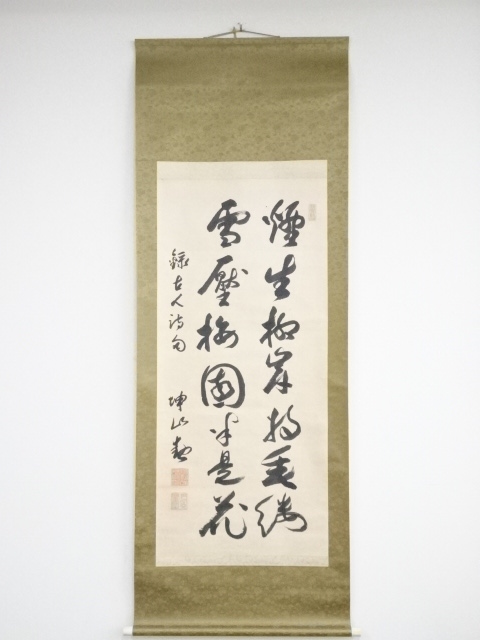 煙生柳岸將垂縷
雪壓梅園半是花
錄古人詩句
坤山